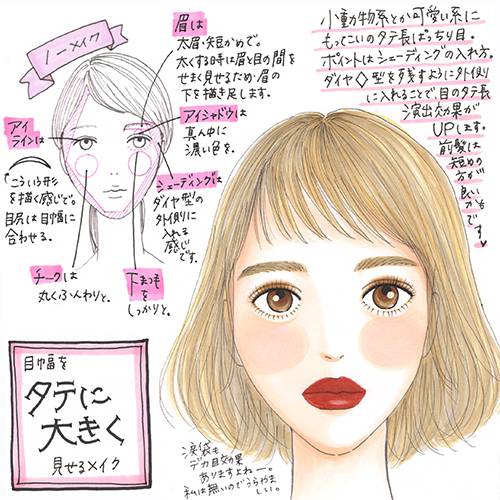 ノーメイク
眉は
太眉・短かめで。
太くする時は眉と目の間を
せまく見せるため、眉の
下を描き足します。
アイシャドウは
真ん中に
濃い色を。
アイ
ラインは
こういう形
を描く感じで。
目尻は目幅に
合わせる。
シェーディングは
ダイヤ型の
外側に
入れる
感じ
です。
チークは
丸くふんわりと。
下まつも
を
しっかりと。
小動物系とか可愛い系に
もってこいのタテ長ぱっちり目。
ポイントはシェーディングの入れ方。
ダイヤ◇型を残すように外側
に入れることで、目のタテ長
演出効果が
UPします。
前髪は
短めの
方が
良い
かも
です♥
目幅を
タテに
大きく
見せるメイク
涙袋も
デカ目効果
ありますよねー。
私は無いのでうらやま
しい。